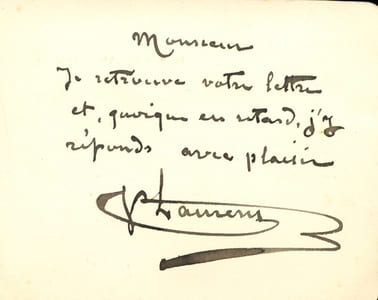 Monsieur
Je retrouve votre lettre
et, quoique en retard, j'y
réponds avec plaisir
Laurens